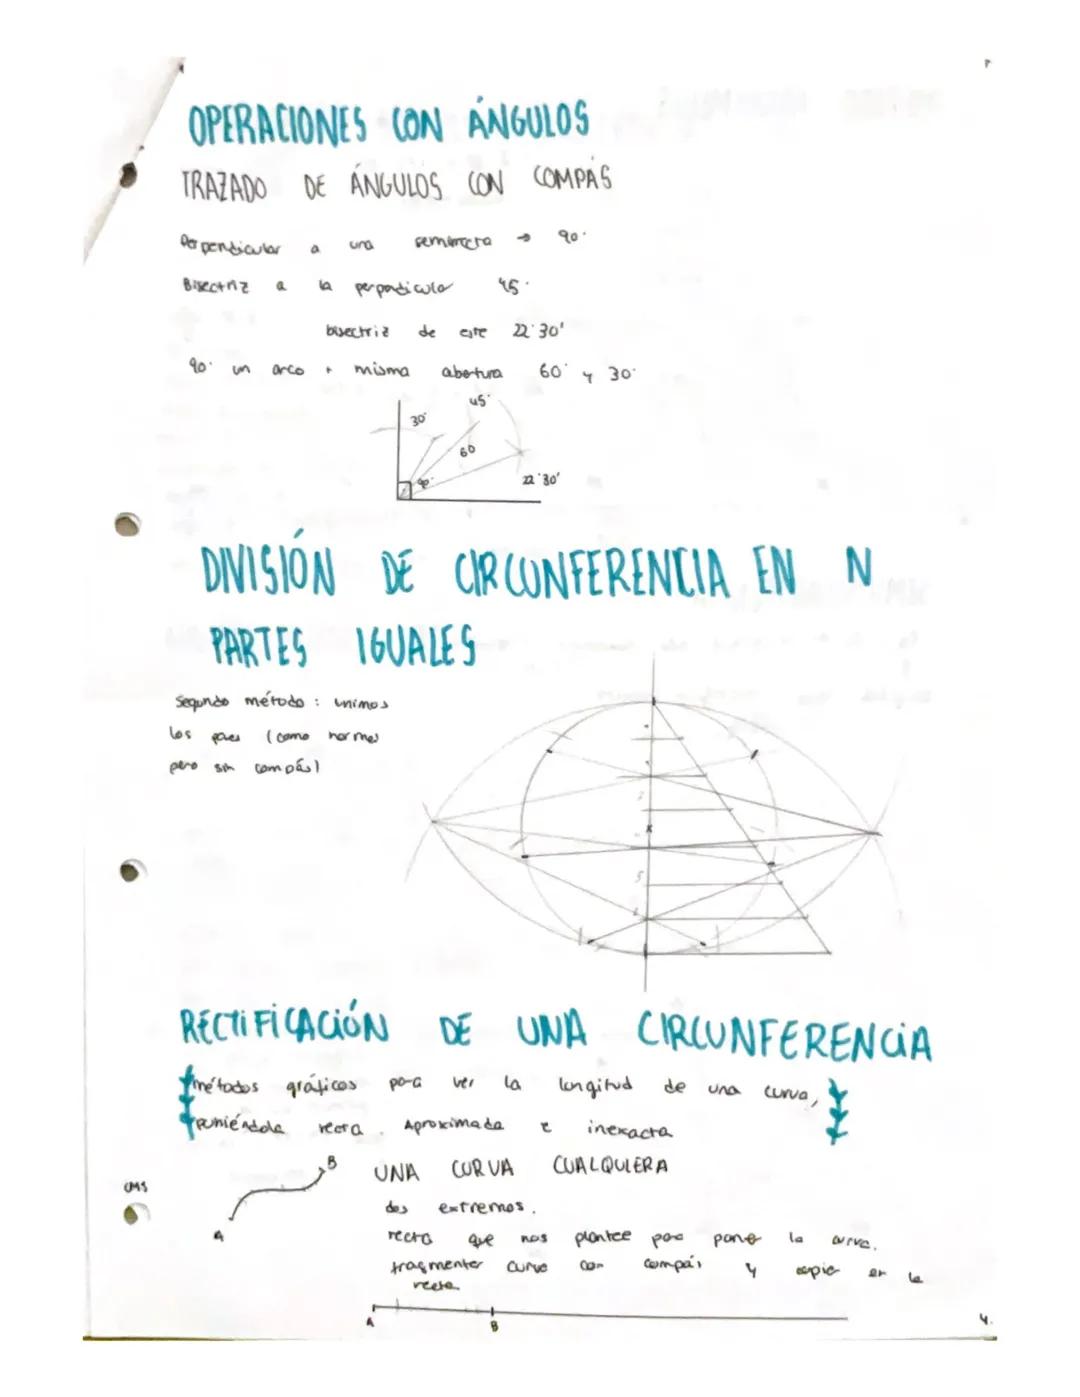 OPERACIONES CON ÁNGULOS
TRAZADO DE ÁNGULOS CON COMPÁS
Perpendicular a una semirrecta → 90°
Bisectriz a la perpendicular 45°
bisectriz de este 22°30'
90° un arco + misma abertura 60° y 30°
45°
30°
60
90°
22°30'
DIVISIÓN DE CIRCUNFERENCIA EN N
PARTES IGUALES
Segundo método: unimos
los pares (como normes
pero sin compás)
5
RECTIFICACIÓN DE UNA CIRCUNFERENCIA
métodos gráficos para ver la longitud de una curva,
poniéndola recta. Aproximada e inexacta
B
UNA CURVA CUALQUIERA
CMS
dos extremos.
A
recta que nos plantee para poner la curva.
fragmenter curva con compás y copier en la
recta
A
B
4.